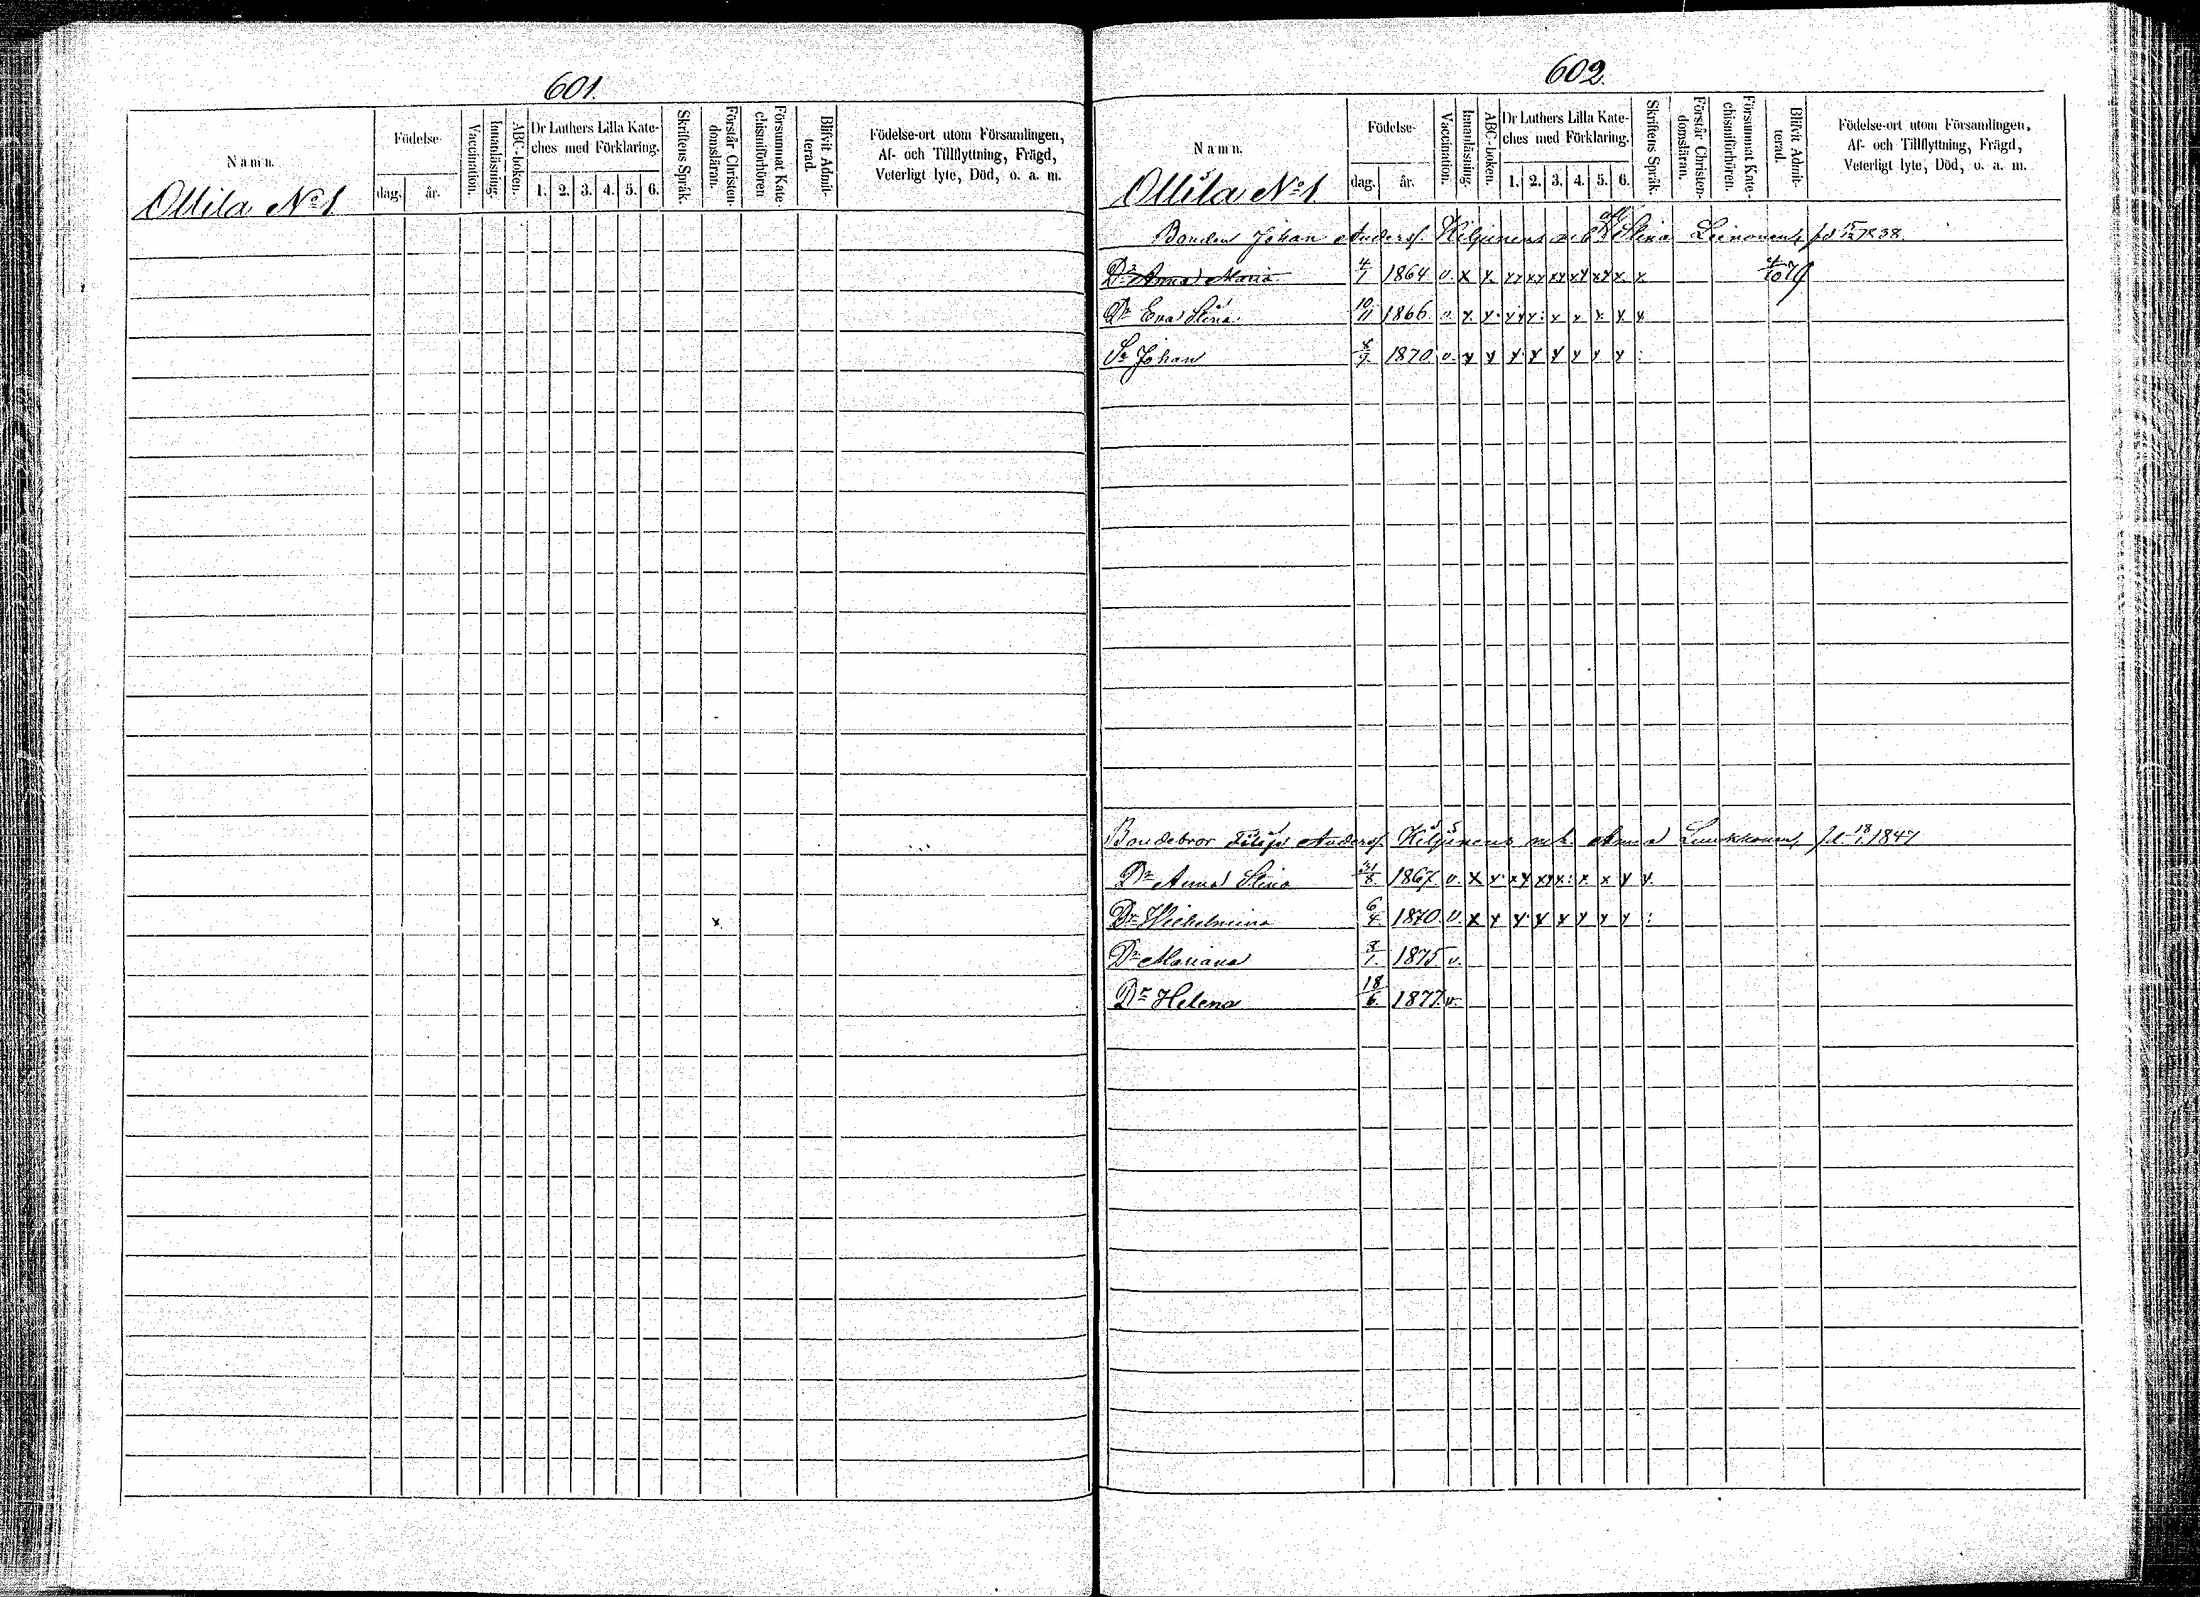 601.
Namn.
Födelse-
dag.
år.
Vaccination.
Innanläsning.
ABC-boken.
Dr Luthers Lilla Kate-
ches med Förklaring.
1. 2. 3. 4. 5. 6.
Skriftens Språk.
Förstår Christen-
domsläran.
Försummat Kate-
chismiförhören.
Blifvit Admit-
terad.
Födelse-ort utom Församlingen,
Af- och Tillflyttning, Frägd,
Veterligt lyte, Död, o. a. m.
Ollila No 1
x
602.
Namn.
Födelse-
dag.
år.
Vaccination.
Innanläsning.
ABC-boken.
Dr Luthers Lilla Kate-
ches med Förklaring.
1. 2. 3. 4. 5. 6.
Skriftens Språk.
Förstår Christen-
domsläran.
Försummat Kate-
chismiförhören.
Blifvit Admit-
terad.
Födelse-ort utom Församlingen,
Af- och Tillflyttning, Frägd,
Veterligt lyte, Död, o. a. m.
Ollila No 1
Bonden Johan Anders. Kiljunens Stina Leinonen, fd 1838.
Dr Anna Maria 4/1 1864 v. x x xx xx xx xx xx x x 4/10 79
Dr Eva Stina 10/11 1866. v. x x xxx: x x x x x
Sn Johan 8/9. 1870 v. x x x x x x x x :
Bondebror Filip Anders. Kiljunens m. h. Anna Luukkonen, fd 18/1 1847
Dr Anna Stina 31/8 1867 v. x x x x xxx: x x x x
Dr Wilhelmina 6/4. 1870 v. x x x x x x x x :
Dr Mariana 8/1. 1875 v.
Dr Helena 18/6. 1877. v.